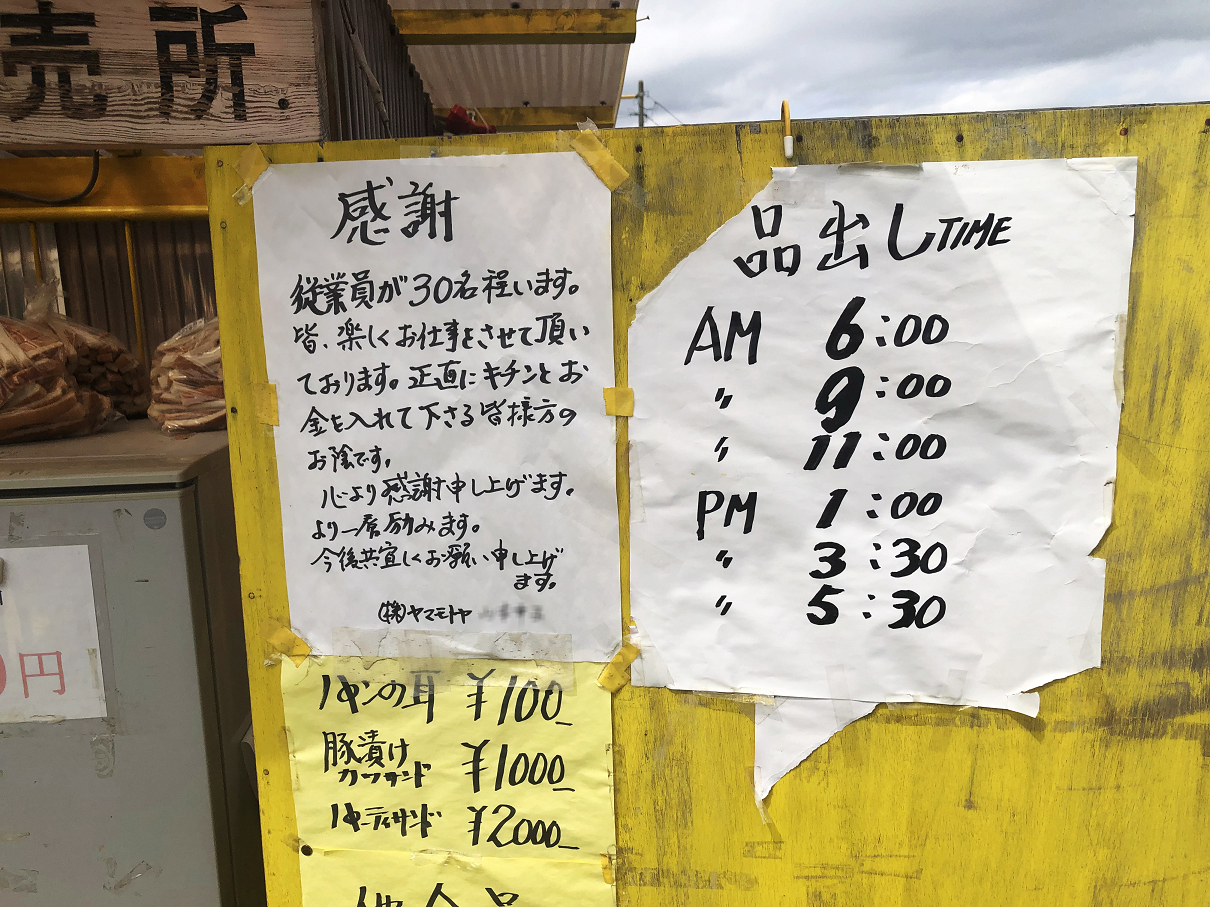 売所
感謝
従業員が30名程います。
皆、楽しくお仕事をさせて頂い
ております。正直にキチンとお
金を入れて下さる皆様方の
お陰です。
心より感謝申し上げます。
より一層励みます。
今後共宜しくお願い申し上げ
ます。
(株)ヤマモトヤ
パンの耳 ¥100_
豚漬け
カツサンド ¥1000_
パーティサンド ¥2000_
品出しTIME
AM 6:00
〃 9:00
〃 11:00
PM 1:00
〃 3:30
〃 5:30
円